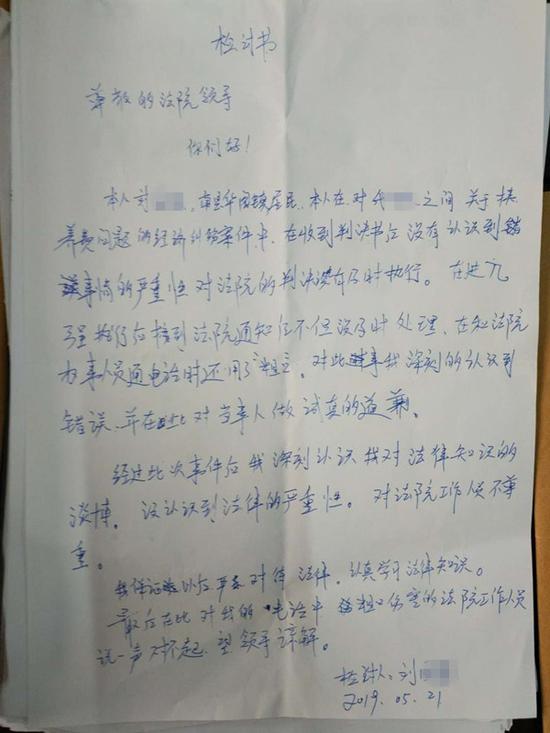 检讨书
尊敬的法院领导
你们好!
本人刘 华阁镇居民,本人在对代 之间关于抚
养费问题的经济纠纷案件中,在收到判决书后没有认识到
事情的严重性对法院的判决没有及时执行。在进入
强执行后接到法院通知后不但没及时处理,在和法院
办事人员通电话时还用了粗口,对此事我深刻的认识到
错误,并在此对当事人做认真的道歉。
经过此次事件后我深刻认识我对法律知识的
淡博。没认识到法律的严重性。对法院工作人员不尊
重。
我保证以后严肃对待法律,认真学习法律知识。
最后在此对我的电话中粗口伤害的法院工作人员
说一声对不起,望领导谅解。
检讨人:刘
2019.05.21